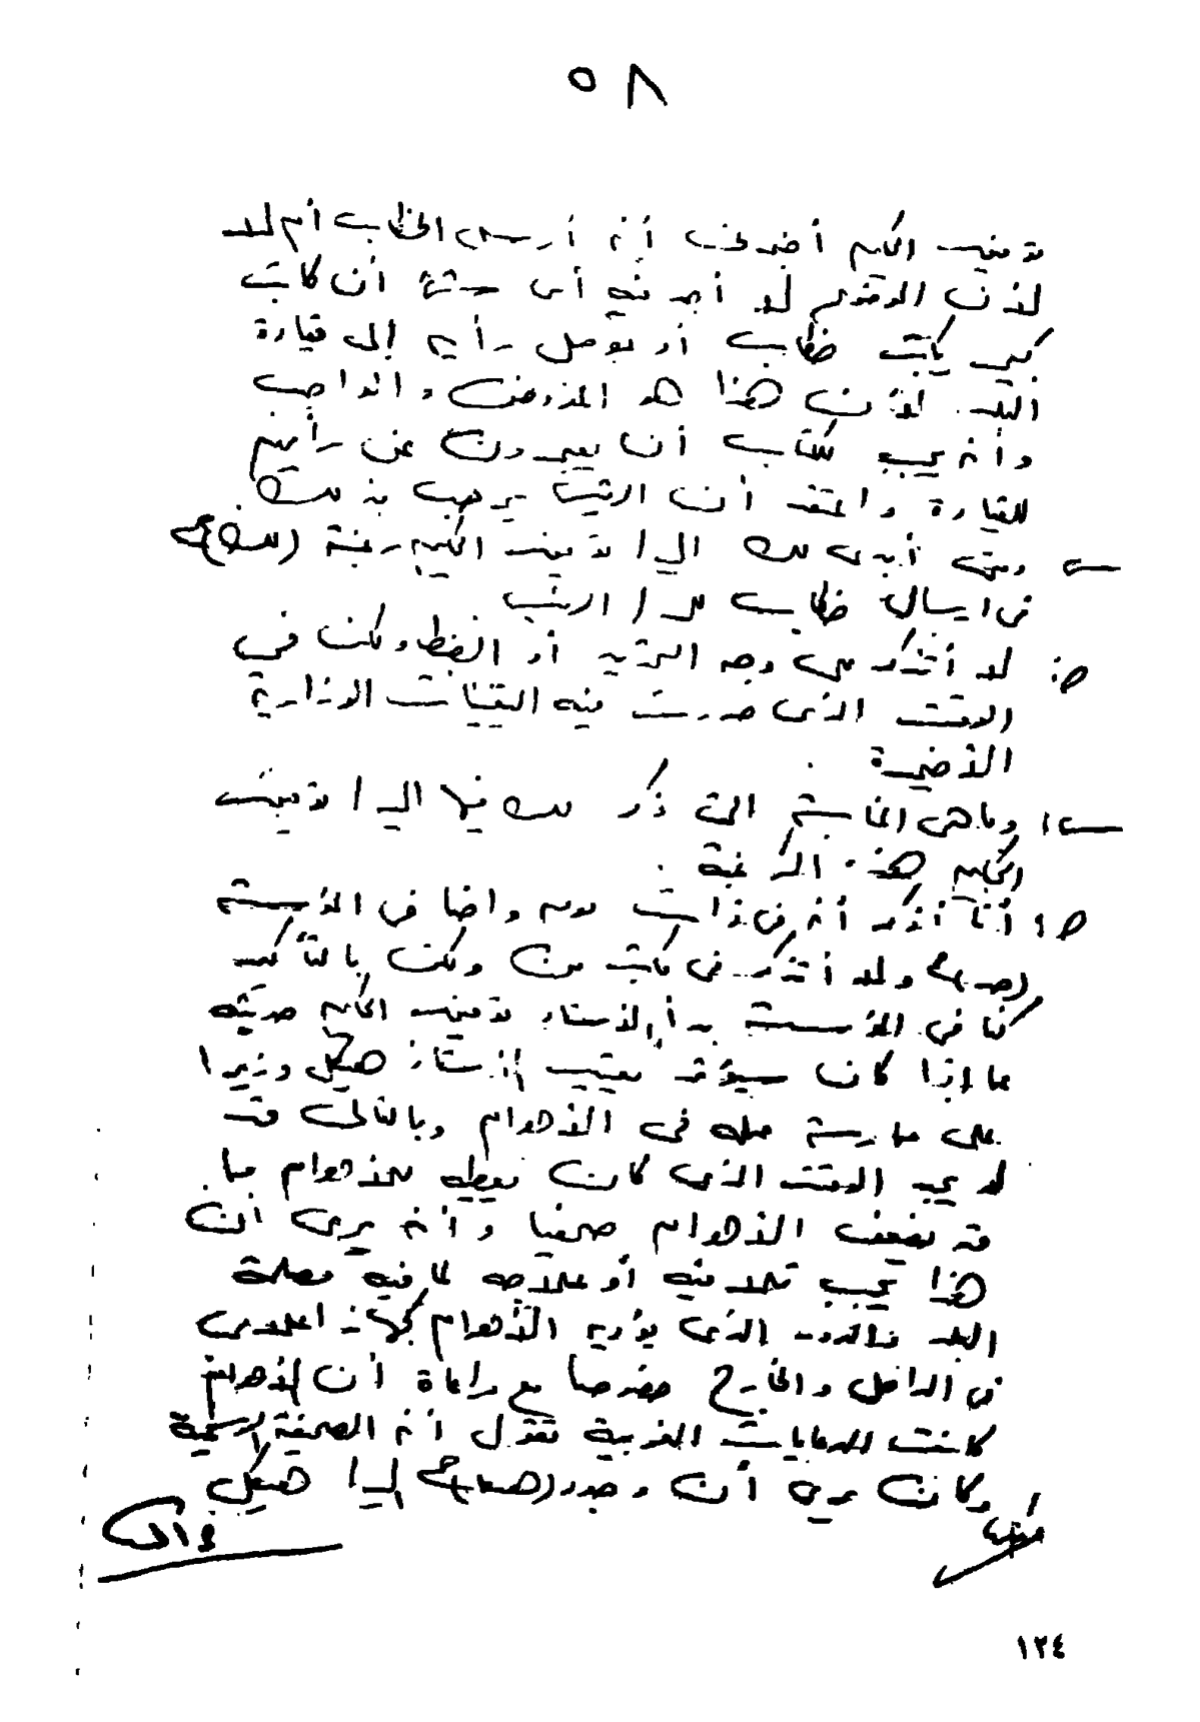 ٥٨
توفيق الحكيم أخبرني أنه أرسل الخطاب أم لا
لأن الموضوع لم أجد فيه أي شئ أن كاتب
كبير يكتب خطاب أو يوصل رأيه إلى قيادة
البلد لأن هذا هو المفروض والواجب
وأنه يجب للكتاب أن يعبرون عن رأيهم
للقيادة واعتقد أن الرئيس يرحب بذلك
س ومتى أبدى لك السيد/ توفيق الحكيم رغبته
في ارسال خطاب للسيد/ الرئيس
ج: لا أتذكر على وجه التحديد أو الضبط ولكن في
الوقت الذي صدرت فيه التعيينات الوزارية
الأخيرة .
س: وما هي المناسبة التي ذكر لك فيها السيد/ توفيق
الحكيم هذه الرغبة .
ج: أنا أذكر أنه في ذات يوم واحنا في المؤسسة
ولا أتذكر في مكتب من ولكن بالتأكيد
كنا في المؤسسة بدأ الأستاذ توفيق الحكيم حديثه
عما إذا كان سيؤثر تعيين الأستاذ هيكل وزيرا
على ممارسة عمله في الأهرام وبالتالي قد
لا يجد الوقت الذي كان يعطيه للأهرام مما
قد يضعف الأهرام صحفيا وأنه يرى أن
هذا يجب تلافيه أو علاجه لما فيه مصلحة
البلد والدور الذي يؤديه الأهرام كجهاز اعلامي
في الداخل والخارج خصوصا مع مراعاة أن الأهرام
كانت الدعايات الغربية تقول أنه الصحيفة الرسمية
وكان يرى أن وجود السيد/ هيكل
١٢٤